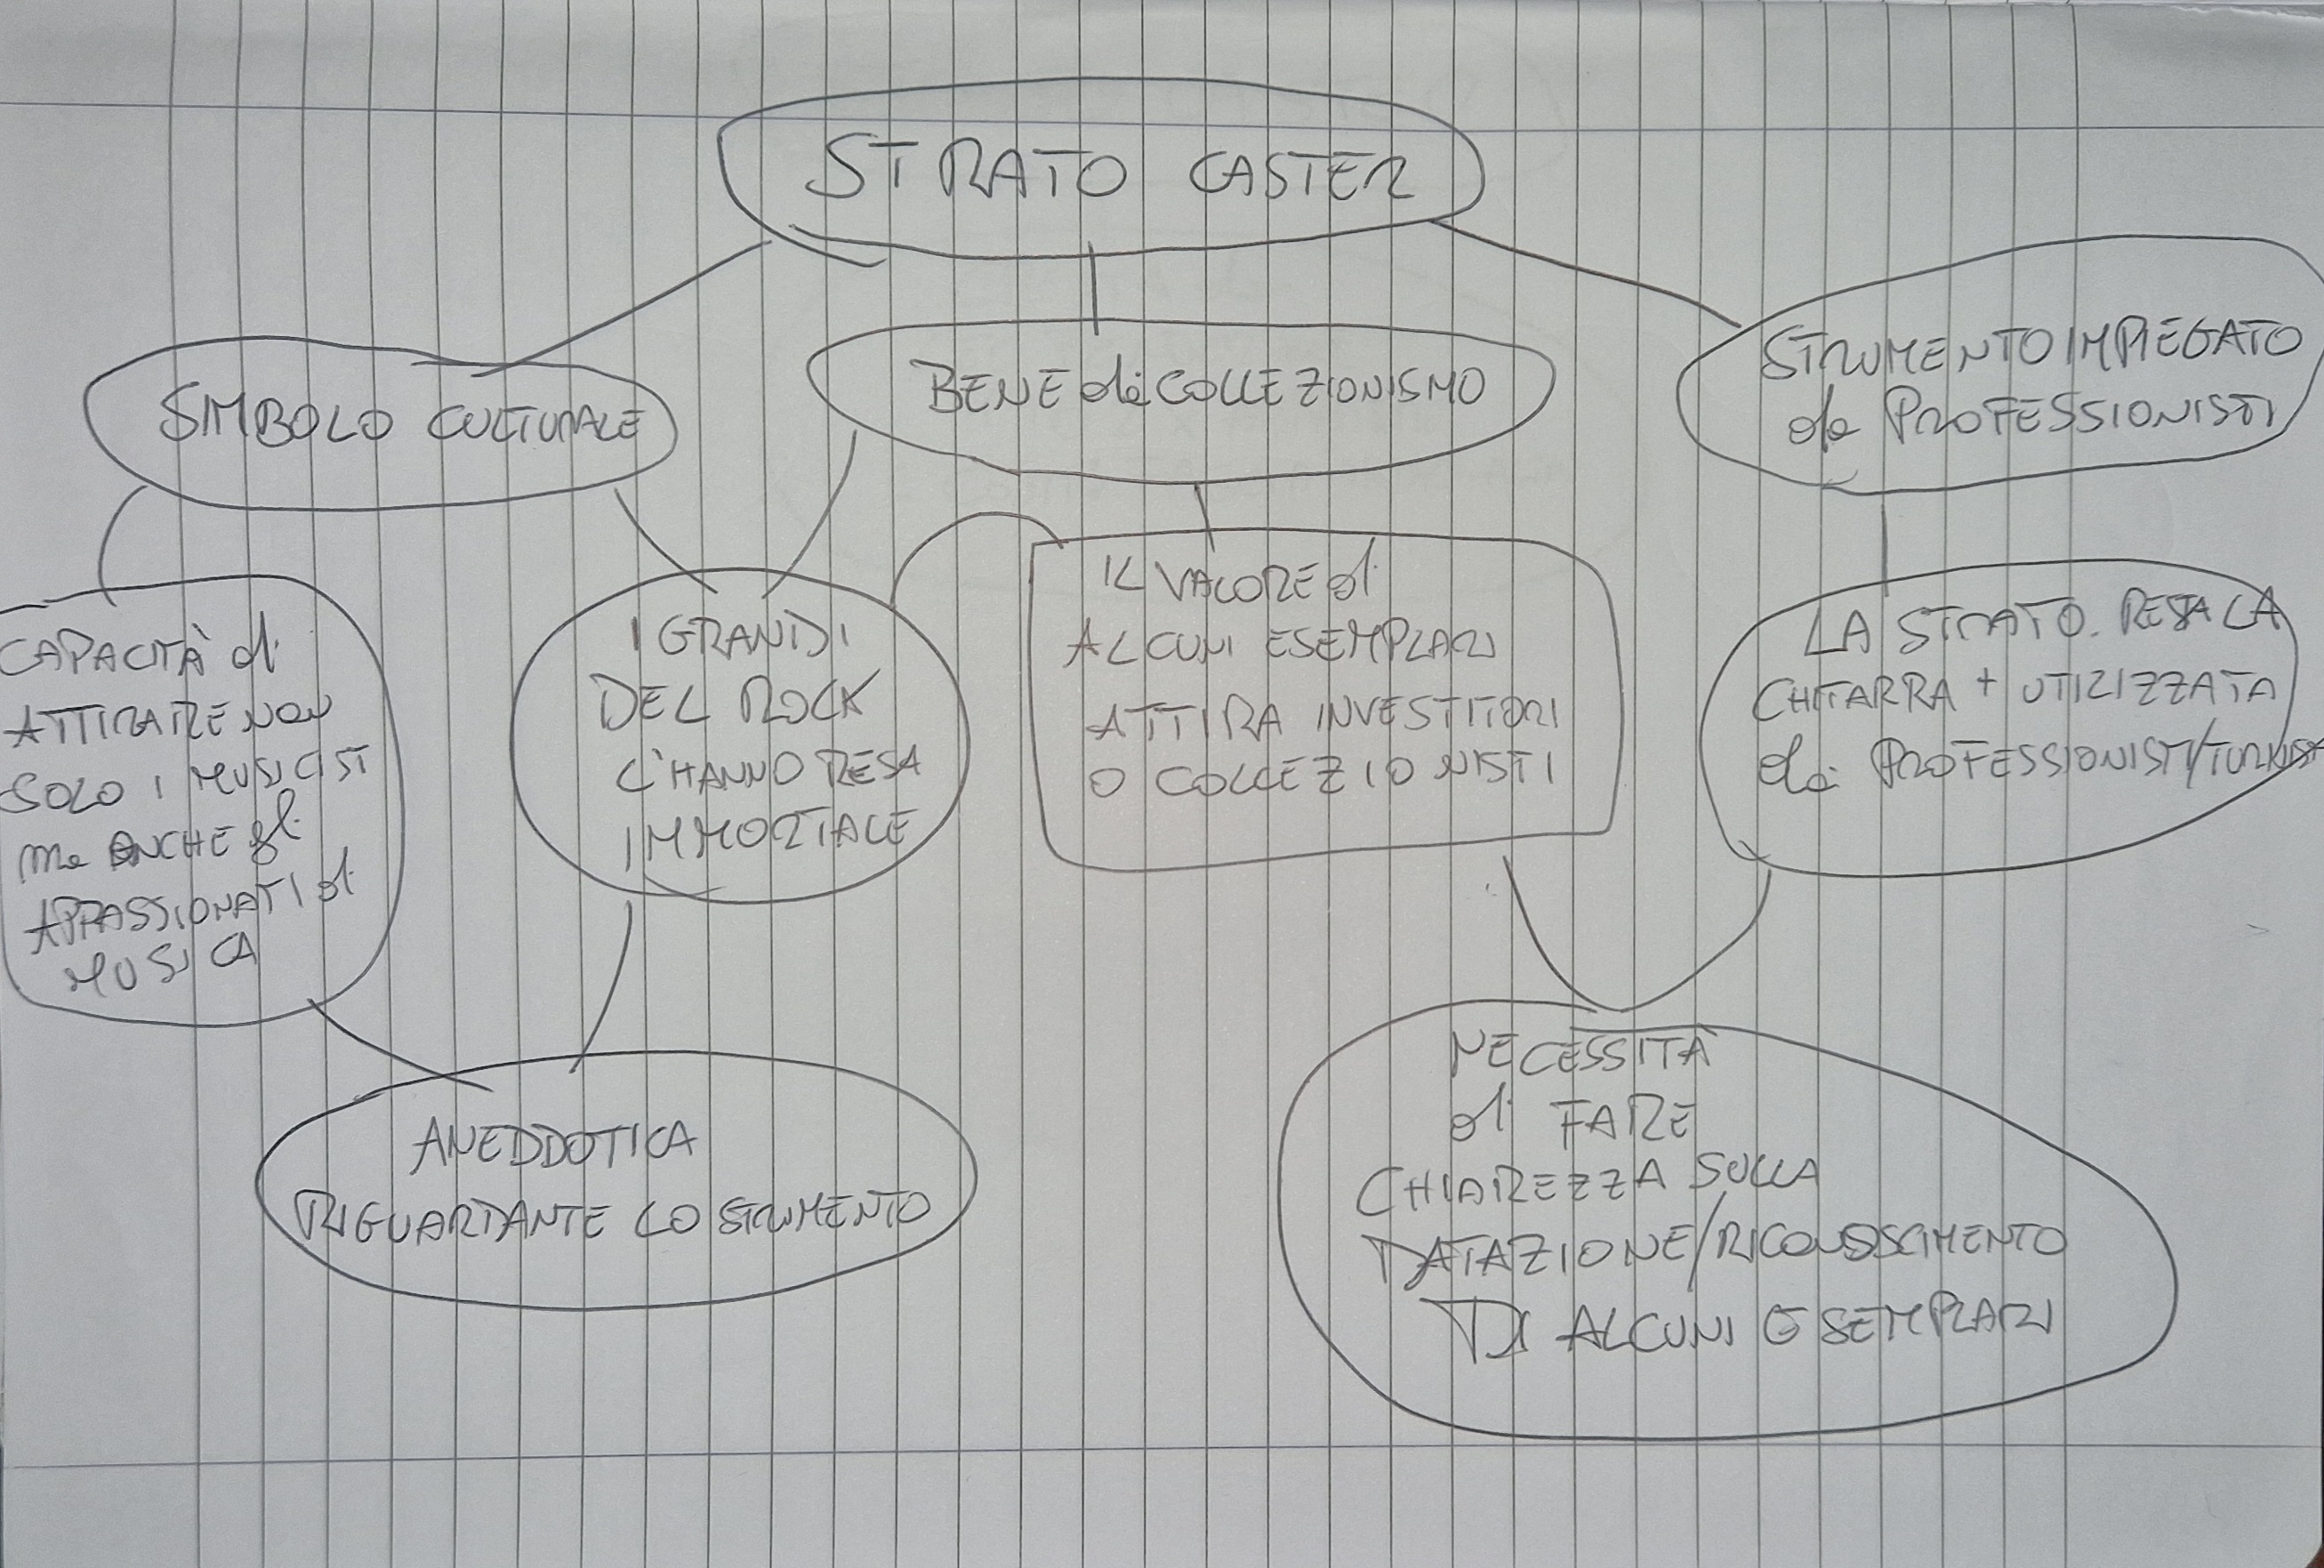 STRATO CASTER
SIMBOLO CULTURALE
BENE di COLLEZIONISMO
STRUMENTO IMPIEGATO
da PROFESSIONISTI
CAPACITÀ di
ATTIRARE NON
SOLO I MUSICISTI
ma ANCHE gli
APPASSIONATI di
MUSICA
I GRANDI
DEL ROCK
L'HANNO RESA
IMMORTALE
IL VALORE di
ALCUNI ESEMPLARI
ATTIRA INVESTITORI
O COLLEZIONISTI
LA STRATO. RESTA LA
CHITARRA + UTILIZZATA
da PROFESSIONISTI/TURNISTI
ANEDDOTICA
RIGUARDANTE LO STRUMENTO
NECESSITÀ
di FARE
CHIAREZZA SULLA
DATAZIONE/RICONOSCIMENTO
DI ALCUNI ESEMPLARI